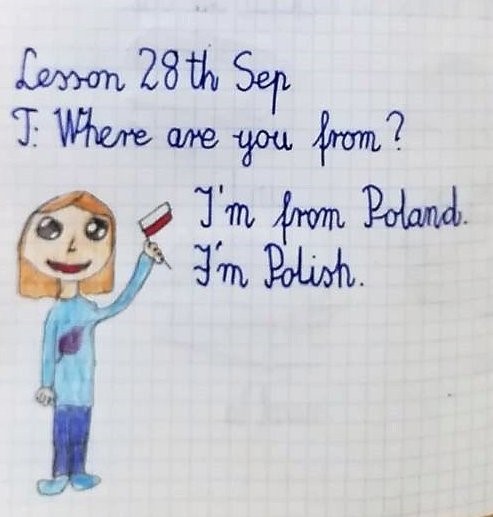 Lesson 28th Sep
T: Where are you from?
I'm from Poland.
I'm Polish.